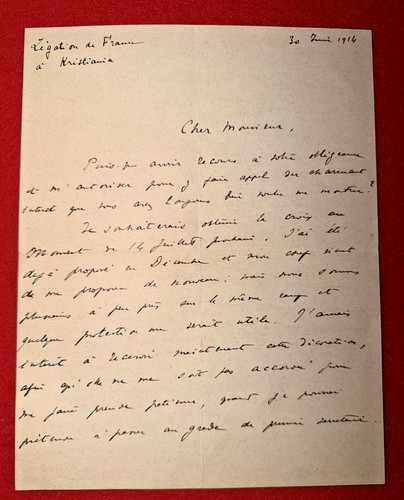 Légation de France
à Kristiania
30 Juin 1914
Cher Monsieur,
Puis-je avoir recours à votre obligeance
et m'autoriser pour y faire appel du charmant
intérêt que vous avez toujours bien voulu me montrer?
Je souhaiterais obtenir la croix au
moment du 14 Juillet prochain. J'ai été
déjà proposé en Décembre et mon chef vient
de me proposer de nouveau: mais nous sommes
plusieurs à peu près sur le même rang et
quelque protection me serait utile. J'aurais
intérêt à recevoir maintenant cette décoration,
afin qu'elle ne me soit pas accordée pour
me faire prendre patience, quand je pourrai
prétendre à passer au grade de premier secrétaire.